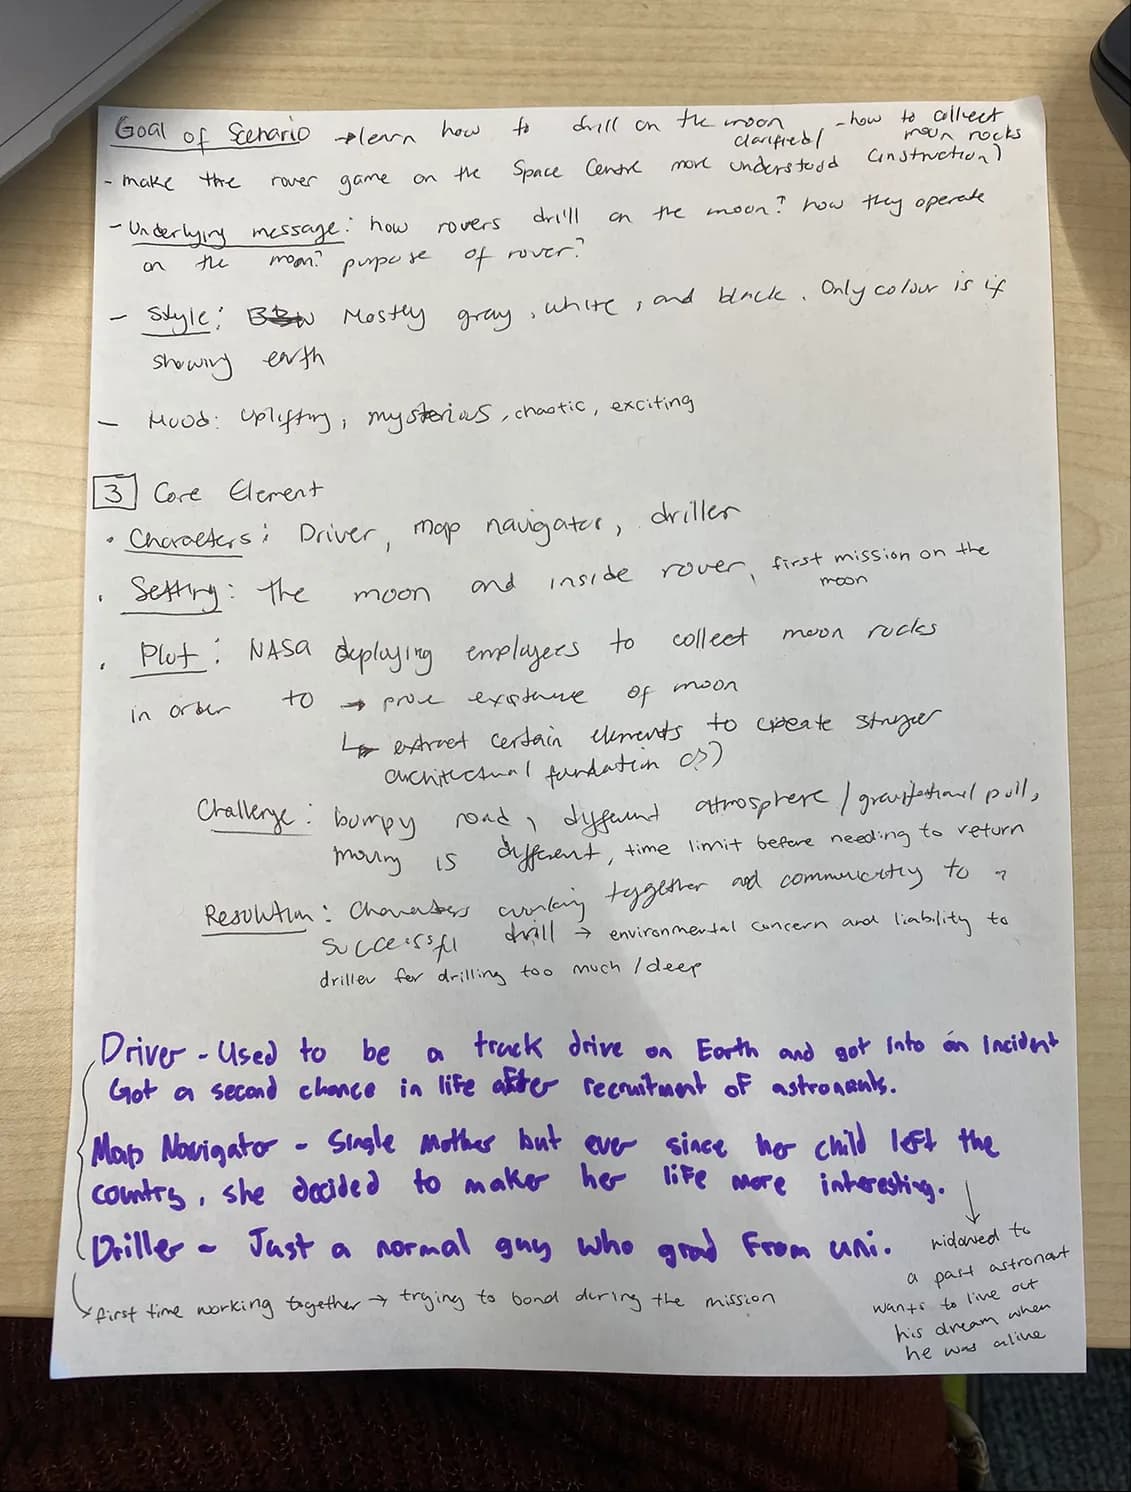 Goal of Scenario → learn how to drill on the moon - how to collect moon rocks
- make the rover game on the Space Centre more clarified/ understood (instruction)
- Underlying message: how rovers drill on the moon? how they operate
on the moon? purpose of rover?
- Style: Mostly gray, white, and black. Only colour is if
showing earth
- Mood: Uplifting, mysterious, chaotic, exciting
3 Core Element
• Characters: Driver, map navigator, driller
• Setting: the moon and inside rover, first mission on the moon
• Plot: NASA deploying employees to collect moon rocks
in order to → prove existence of moon
↳ extract certain elements to create stronger
architectural fundation
Challenge: bumpy road, different atmosphere / gravitational pull,
moving is different, time limit before needing to return
Resolution: Characters working together and to
successful drill → environmental concern and liability to
driller for drilling too much / deep
Driver - Used to be a track drive on Earth and got into an incident
Got a second chance in life after recruitment of astronauts.
Map Navigator - Single mother but ever since her child left the
country, she decided to maker her life more interesting.
Driller - Just a normal guy who grad from uni.
widowed to
a past astronaut
wants to live out
his dream when
he was alive
first time working together → trying to bond during the mission